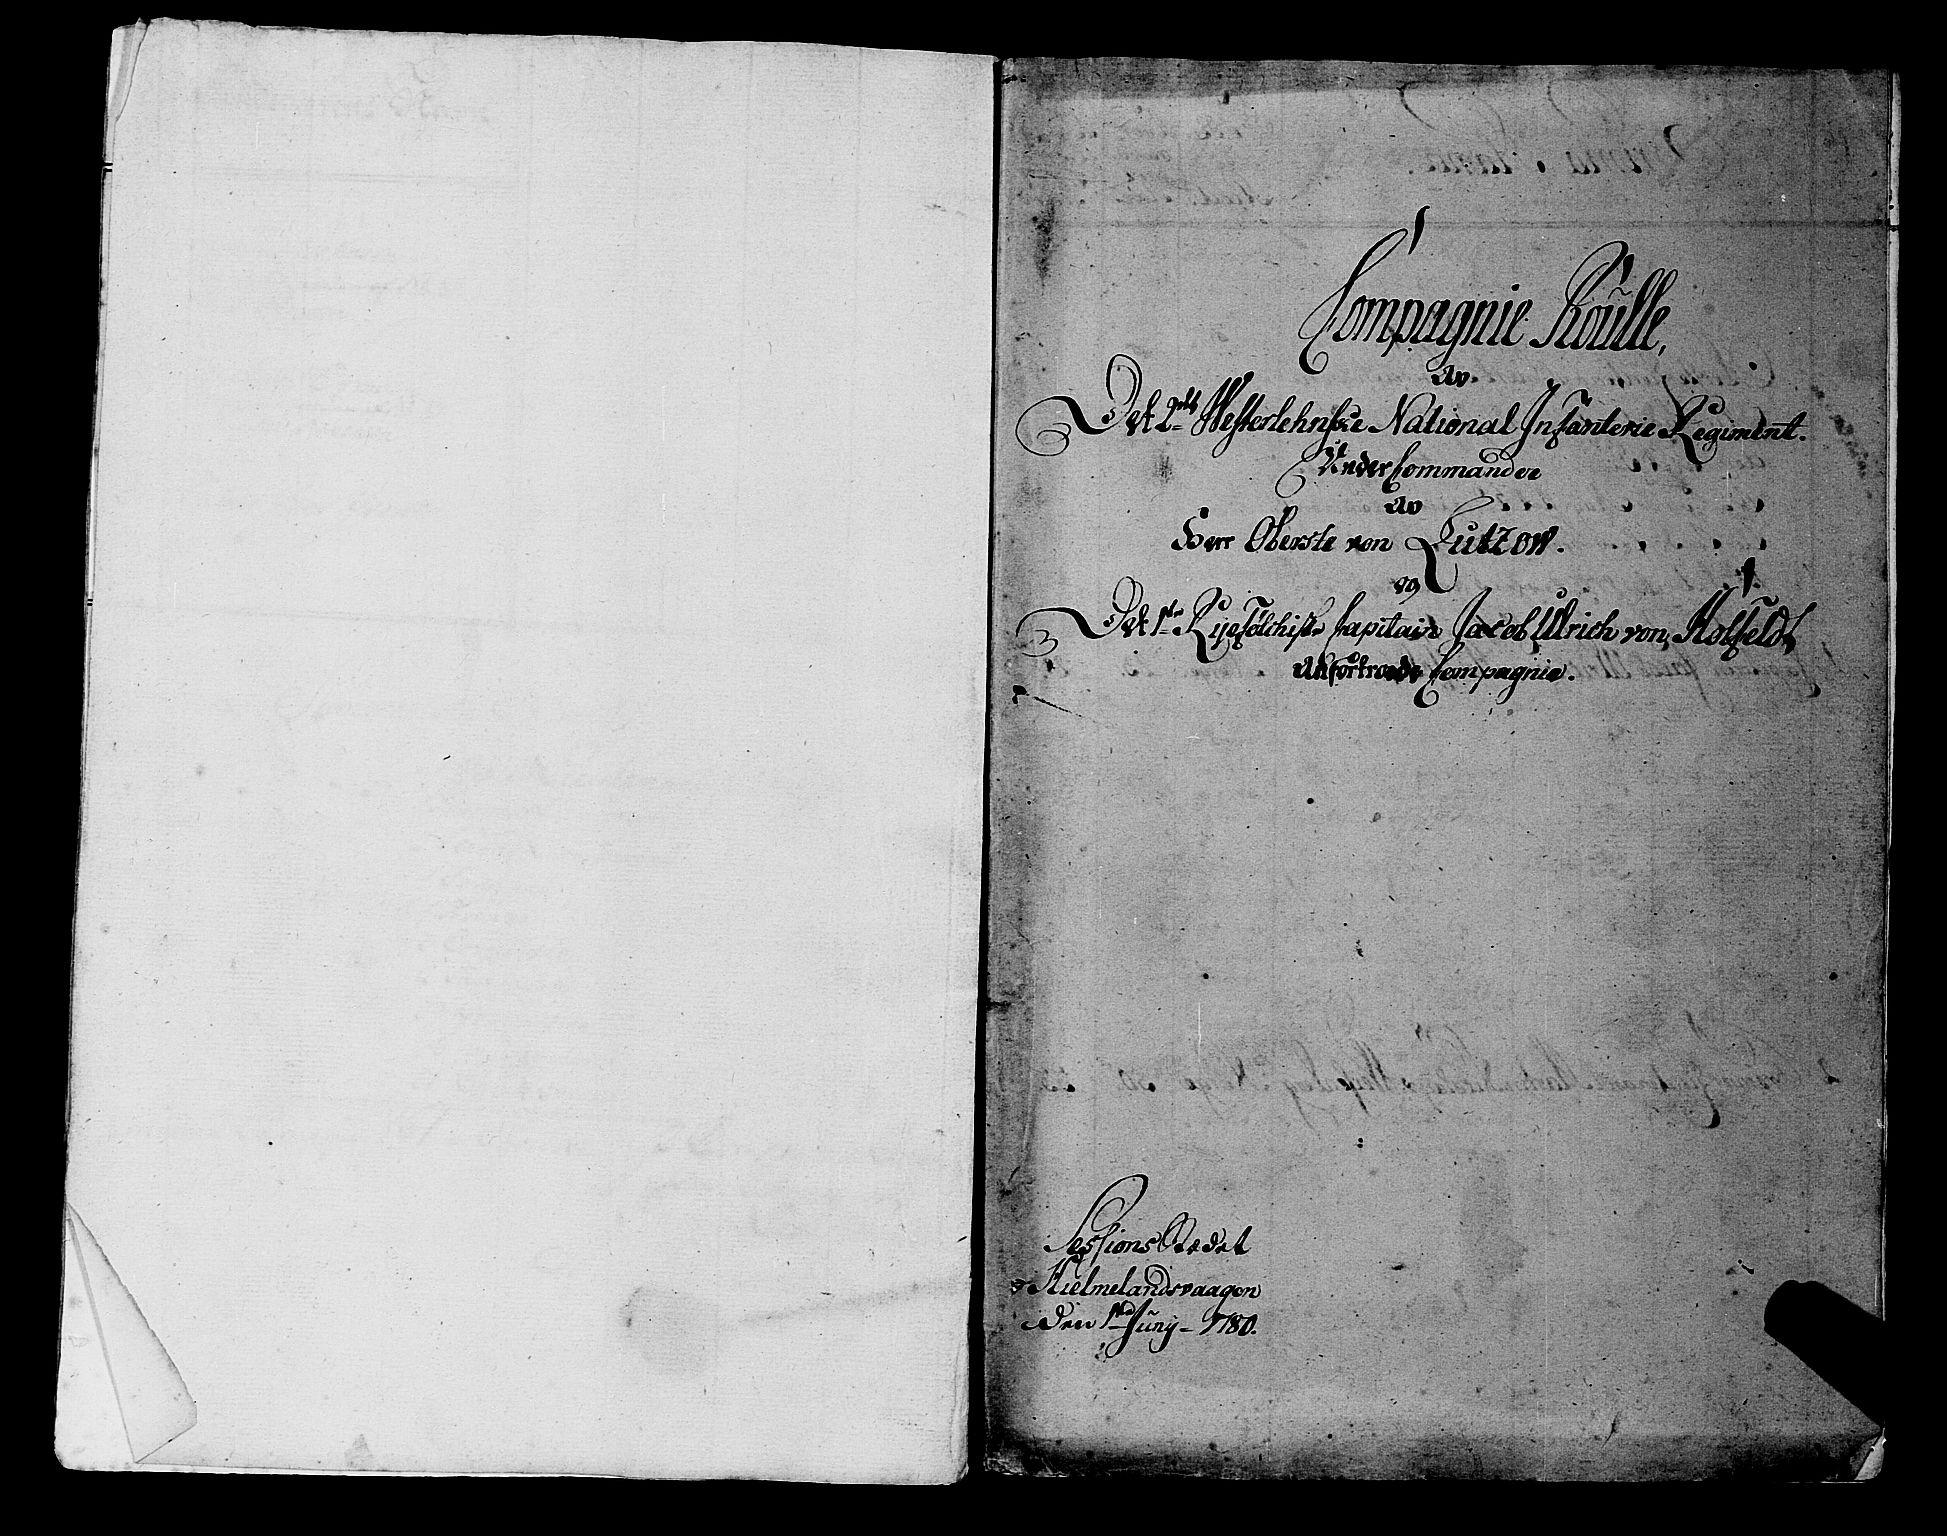 Compagnie Roulle,
av
Det 2det Westerlehnske National Infanterie Regiment.
Under Commandoe
av
Herr Oberste von Lutzow.
og
Det 1ste Ryefölchiske Capitain Jacob Ulrich von Holfeldt
Anfortroede Compagnie.
Sessions Stedet
Hielmelandsvaagen
den 1ste Juny 1780.